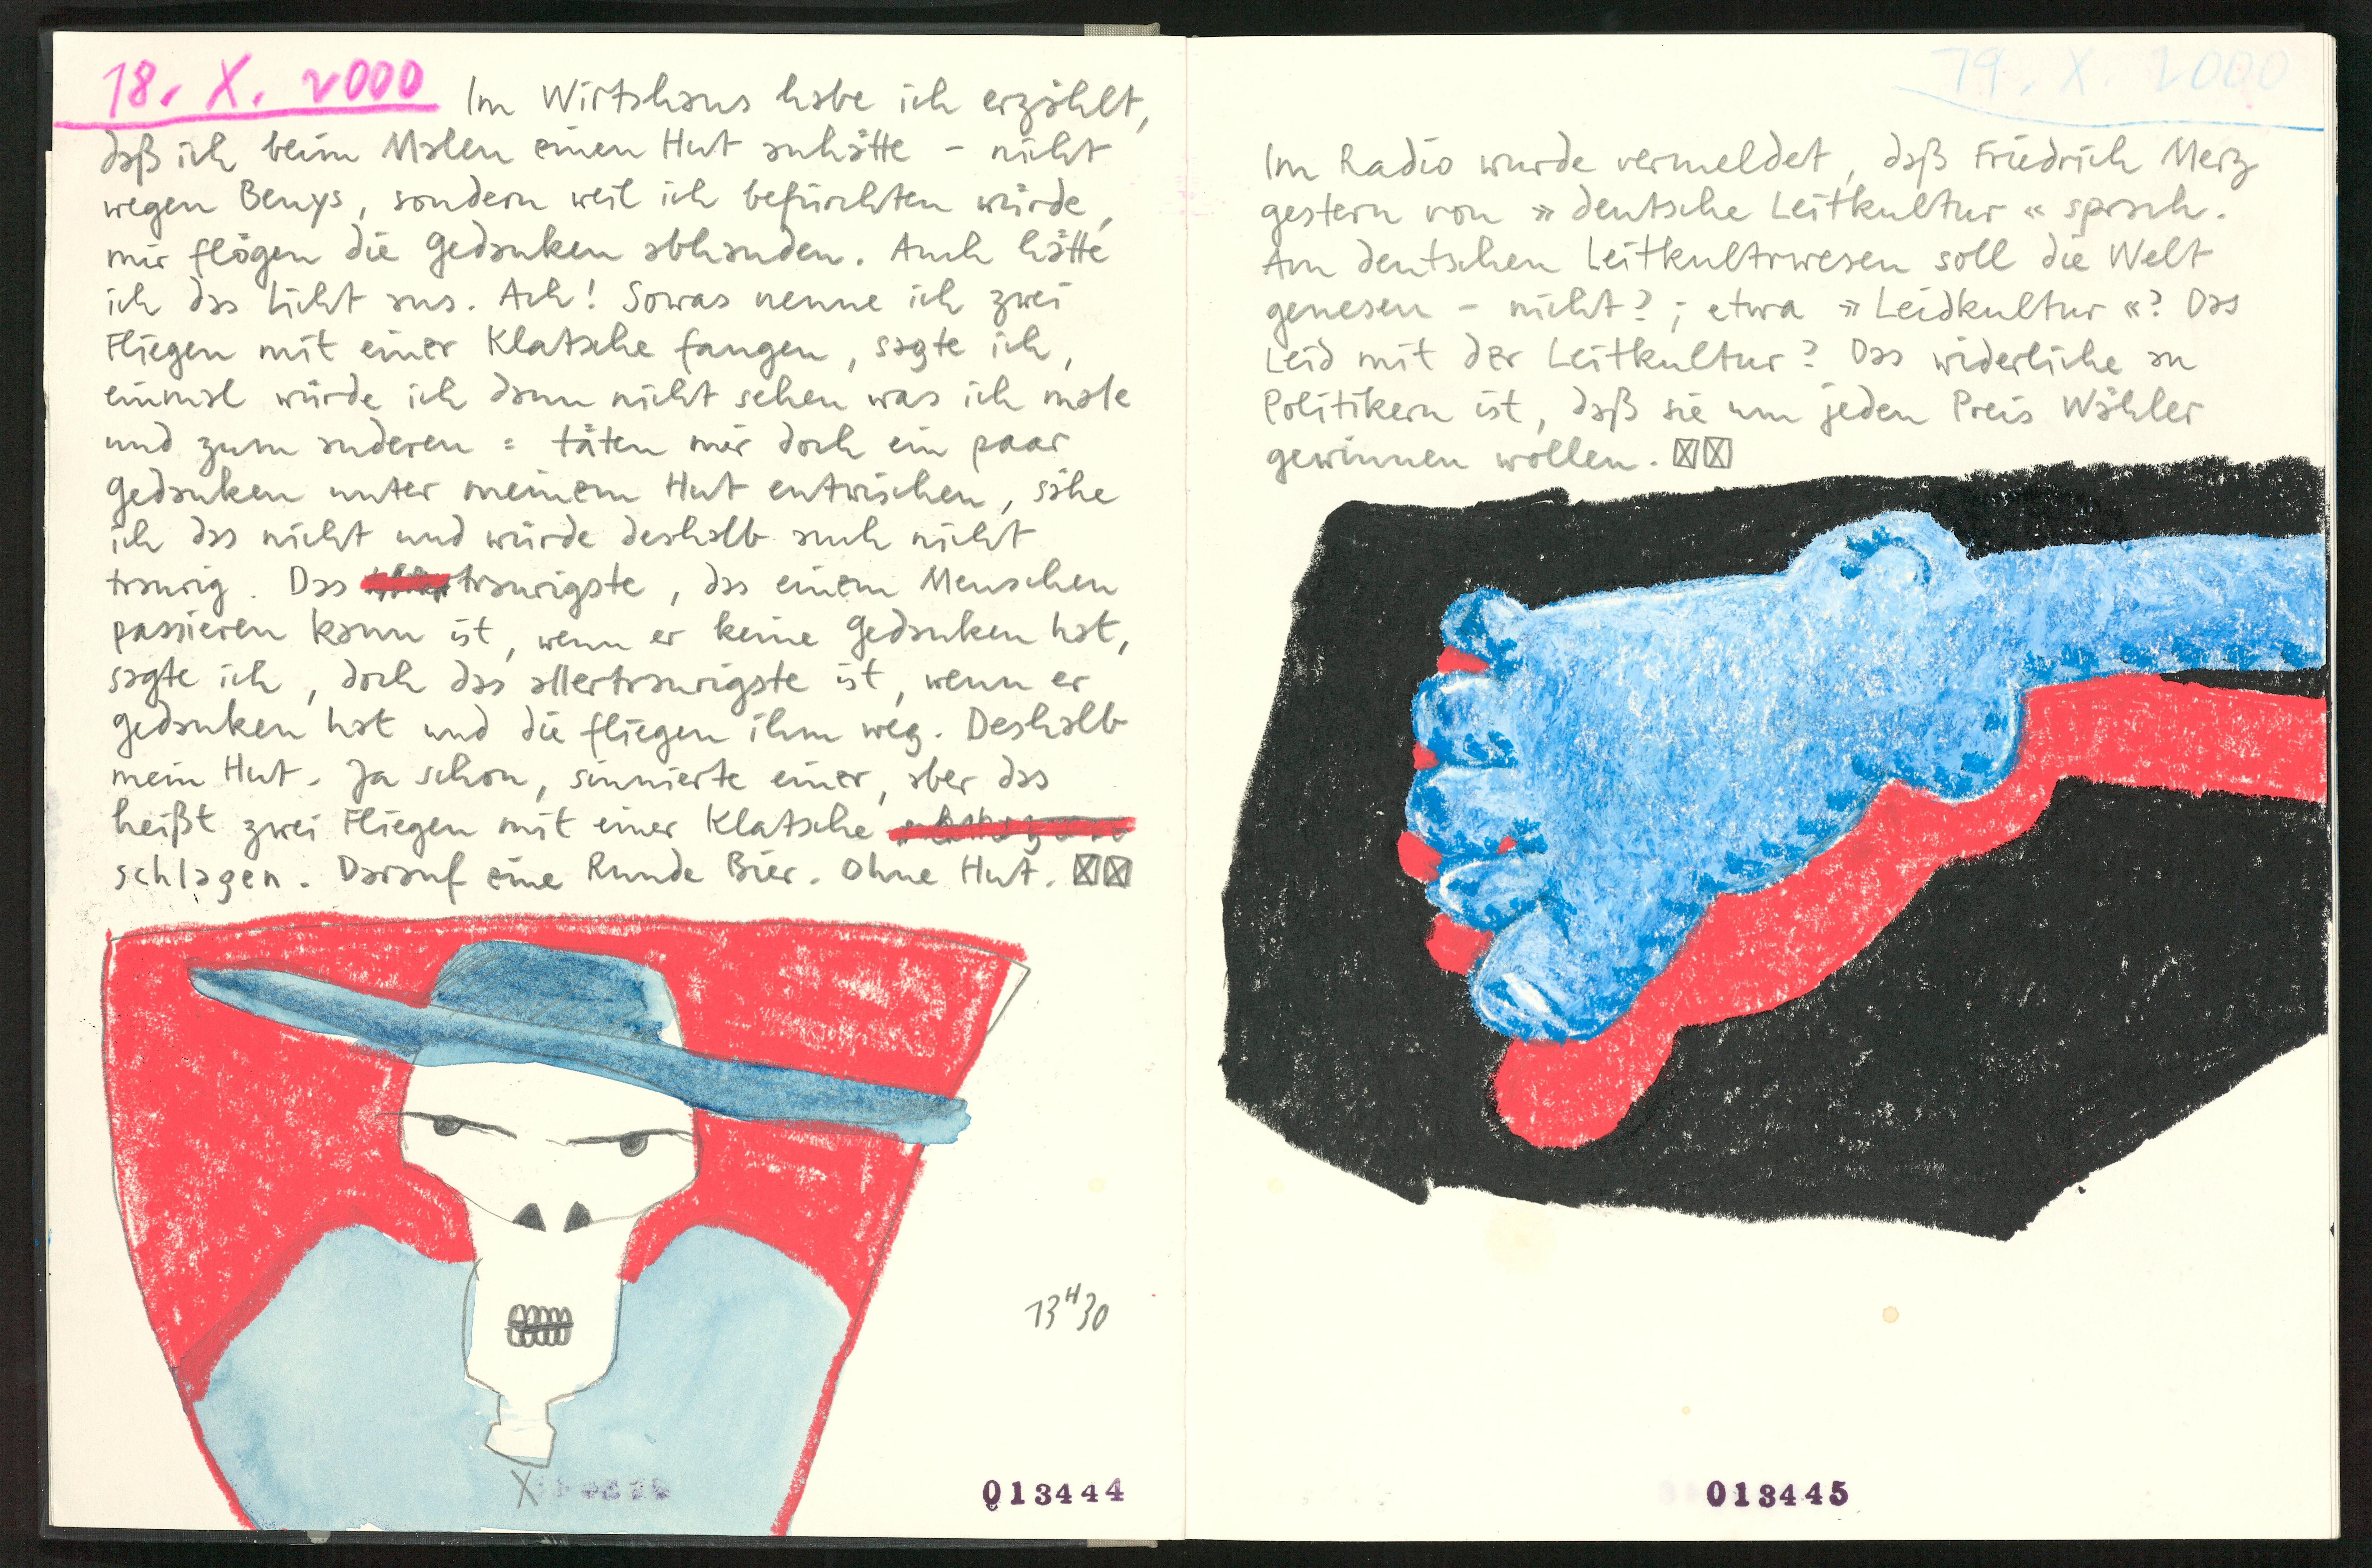 18. X. 2000 Im Wirtshaus habe ich erzählt,
daß ich beim Malen einen Hut anhätte – nicht
wegen Beuys, sondern weil ich befürchten würde,
mir flögen die Gedanken abhanden. Auch hätte
ich das Licht aus. Ach! Sowas nenne ich zwei
Fliegen mit einer Klatsche fangen, sagte ich,
einmal würde ich dann nicht sehen was ich male
und zum anderen : täten mir doch ein paar
Gedanken unter meinem Hut entwischen, sähe
ich das nicht und würde deshalb auch nicht
traurig. Das traurigste, das einem Menschen
passieren kann ist, wenn er keine Gedanken hat,
sagte ich, doch das allertraurigste ist, wenn er
Gedanken hat und die fliegen ihm weg. Deshalb
mein Hut. Ja schon, sinnierte einer, aber das
heißt zwei Fliegen mit einer Klatsche
schlagen. Darauf eine Runde Bier. Ohne Hut. ☒☒
13H30
X
013444
19. X. 2000
Im Radio wurde vermeldet, daß Friedrich Merz
gestern von »deutsche Leitkultur« sprach.
Am deutschen Leitkulturwesen soll die Welt
genesen – nicht? ; etwa »Leidkultur«? Das
Leid mit der Leitkultur? Das widerliche an
Politikern ist, daß sie um jeden Preis Wähler
gewinnen wollen. ☒☒
013445